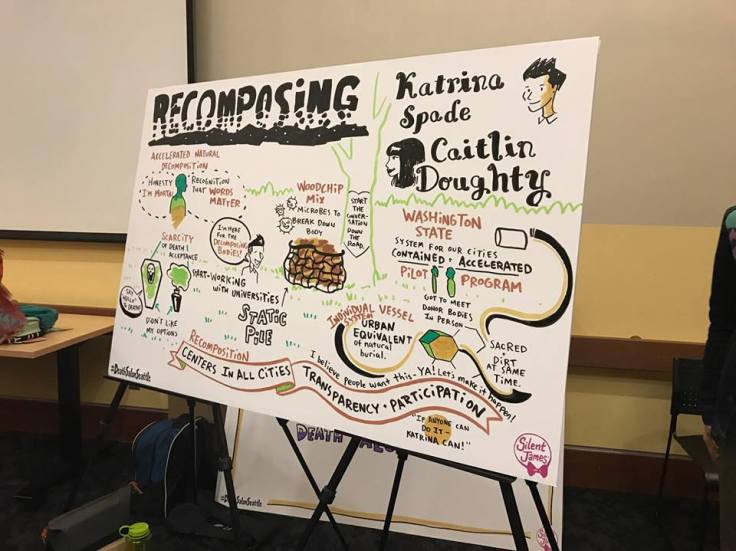 RECOMPOSING
Katrina
Spade
Caitlin
Doughty
ACCELERATED NATURAL
DECOMPOSITION
HONESTY
I'M MORTAL
RECOGNITION
THAT WORDS
MATTER
I'M HERE
FOR THE
DECOMPOSING
BODIES!
SCARCITY
OF DEATH
ACCEPTANCE
SAY
HELLO
DEATH!
DON'T LIKE
MY OPTIONS
START-WORKING
WITH UNIVERSITIES
WOODCHIP
MIX
MICROBES TO
BREAK DOWN
BODY
STATIC
PILE
START
THE
CONVER-
SATION
DOWN
THE
ROAD.
WASHINGTON
STATE
SYSTEM FOR OUR CITIES
CONTAINED + ACCELERATED
PILOT PROGRAM
GOT TO MEET
DONOR BODIES
IN PERSON
INDIVIDUAL VESSEL
SYSTEM
URBAN
EQUIVALENT
of natural
burial.
SACRED
+
DIRT
AT SAME
TIME.
I believe people want this - YA! Let's make it happen!
RECOMPOSITION
CENTERS IN ALL CITIES
TRANSPARENCY + PARTICIPATION
"IF ANYONE CAN
DO IT -
KATRINA CAN!"
#DeathSalonSeattle
Silent
James
DEATH